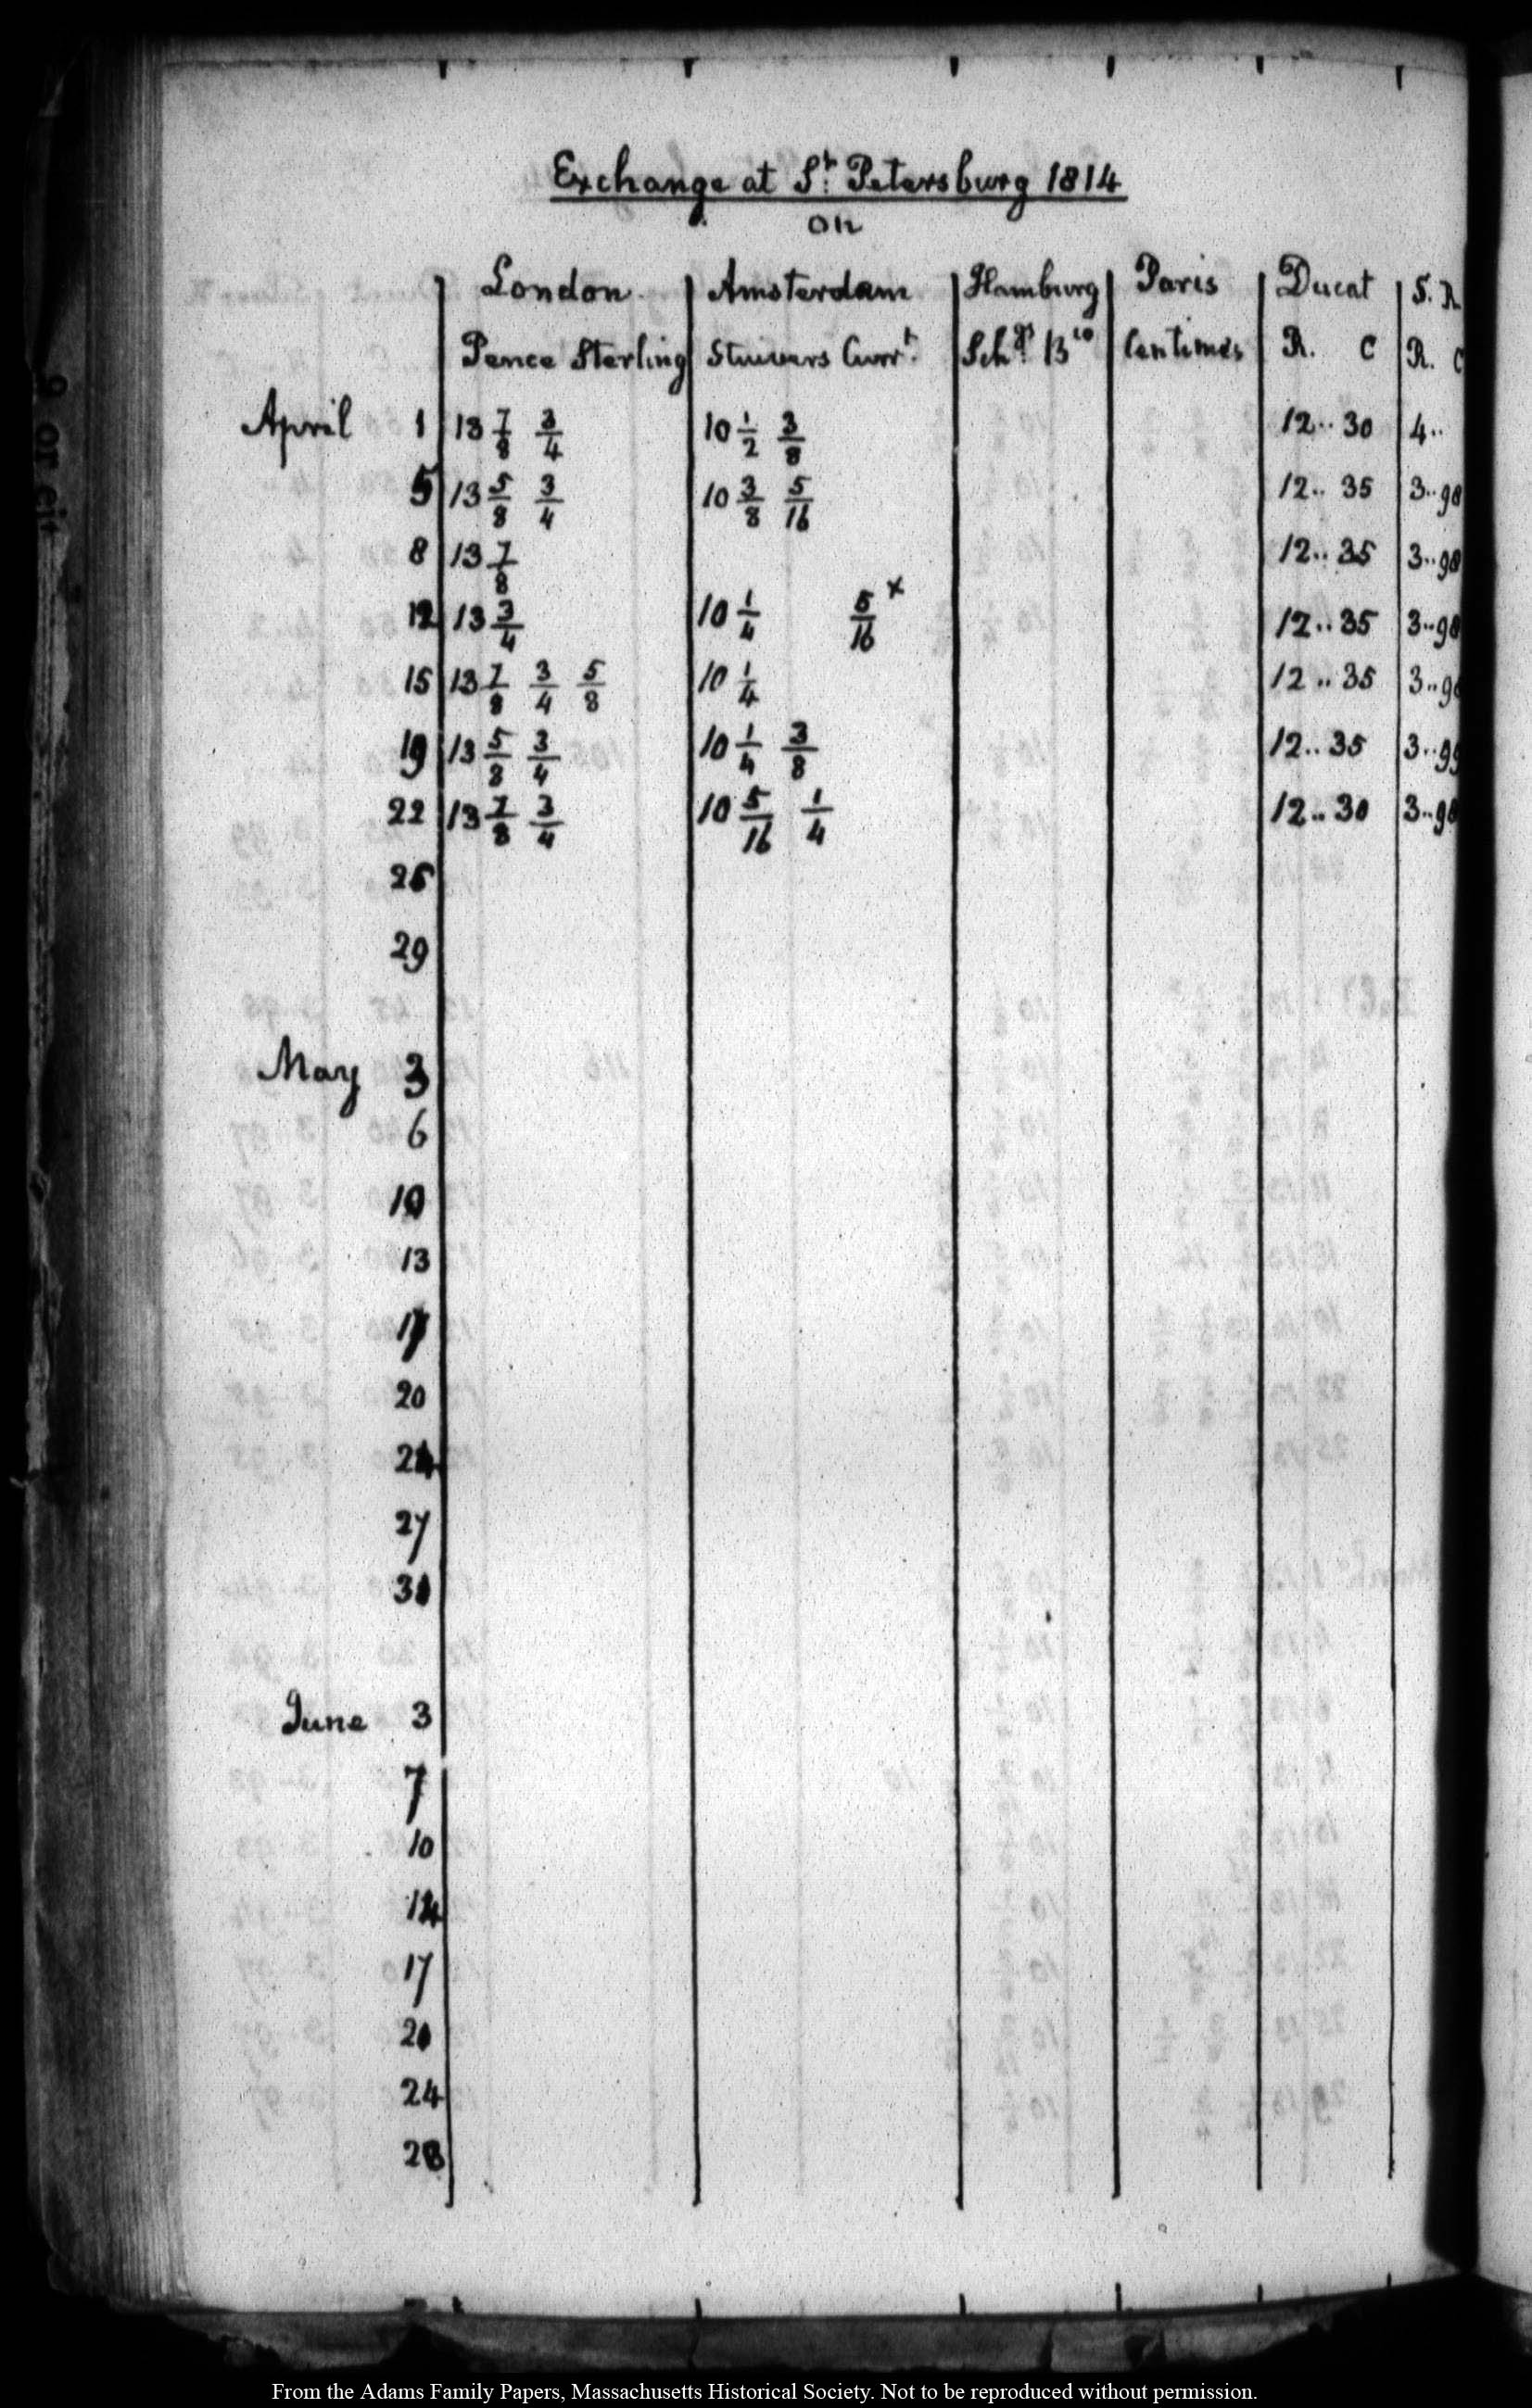 Exchange at St. Petersburg 1814
on
London Amsterdam Hamburg Paris Ducat S. R
Pence Sterling Stuivers Currt. Schgs. Bco Centimes R. C R. C
April 1 13 7/8 3/4 10 1/2 3/8 12.. 30 4..
5 13 5/8 3/4 10 3/8 5/16 12.. 35 3..98
8 13 7/8 12.. 35 3..98
12 13 3/4 10 1/4 5/16 x 12.. 35 3..98
15 13 7/8 3/4 5/8 10 1/4 12.. 35 3..98
19 13 5/8 3/4 10 1/4 3/8 12.. 35 3..99
22 13 7/8 3/4 10 5/16 1/4 12.. 30 3..98
26
29
May 3
6
10
13
17
20
24
27
31
June 3
7
10
14
17
21
24
28
From the Adams Family Papers, Massachusetts Historical Society. Not to be reproduced without permission.